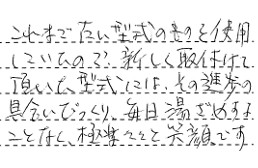 これまで古い型式のものを使用
していたので、新しく取付けて
頂いた型式には、その進歩の
具合いびっくり、毎日湯ざめする
ことなく、極楽々々と笑顔です